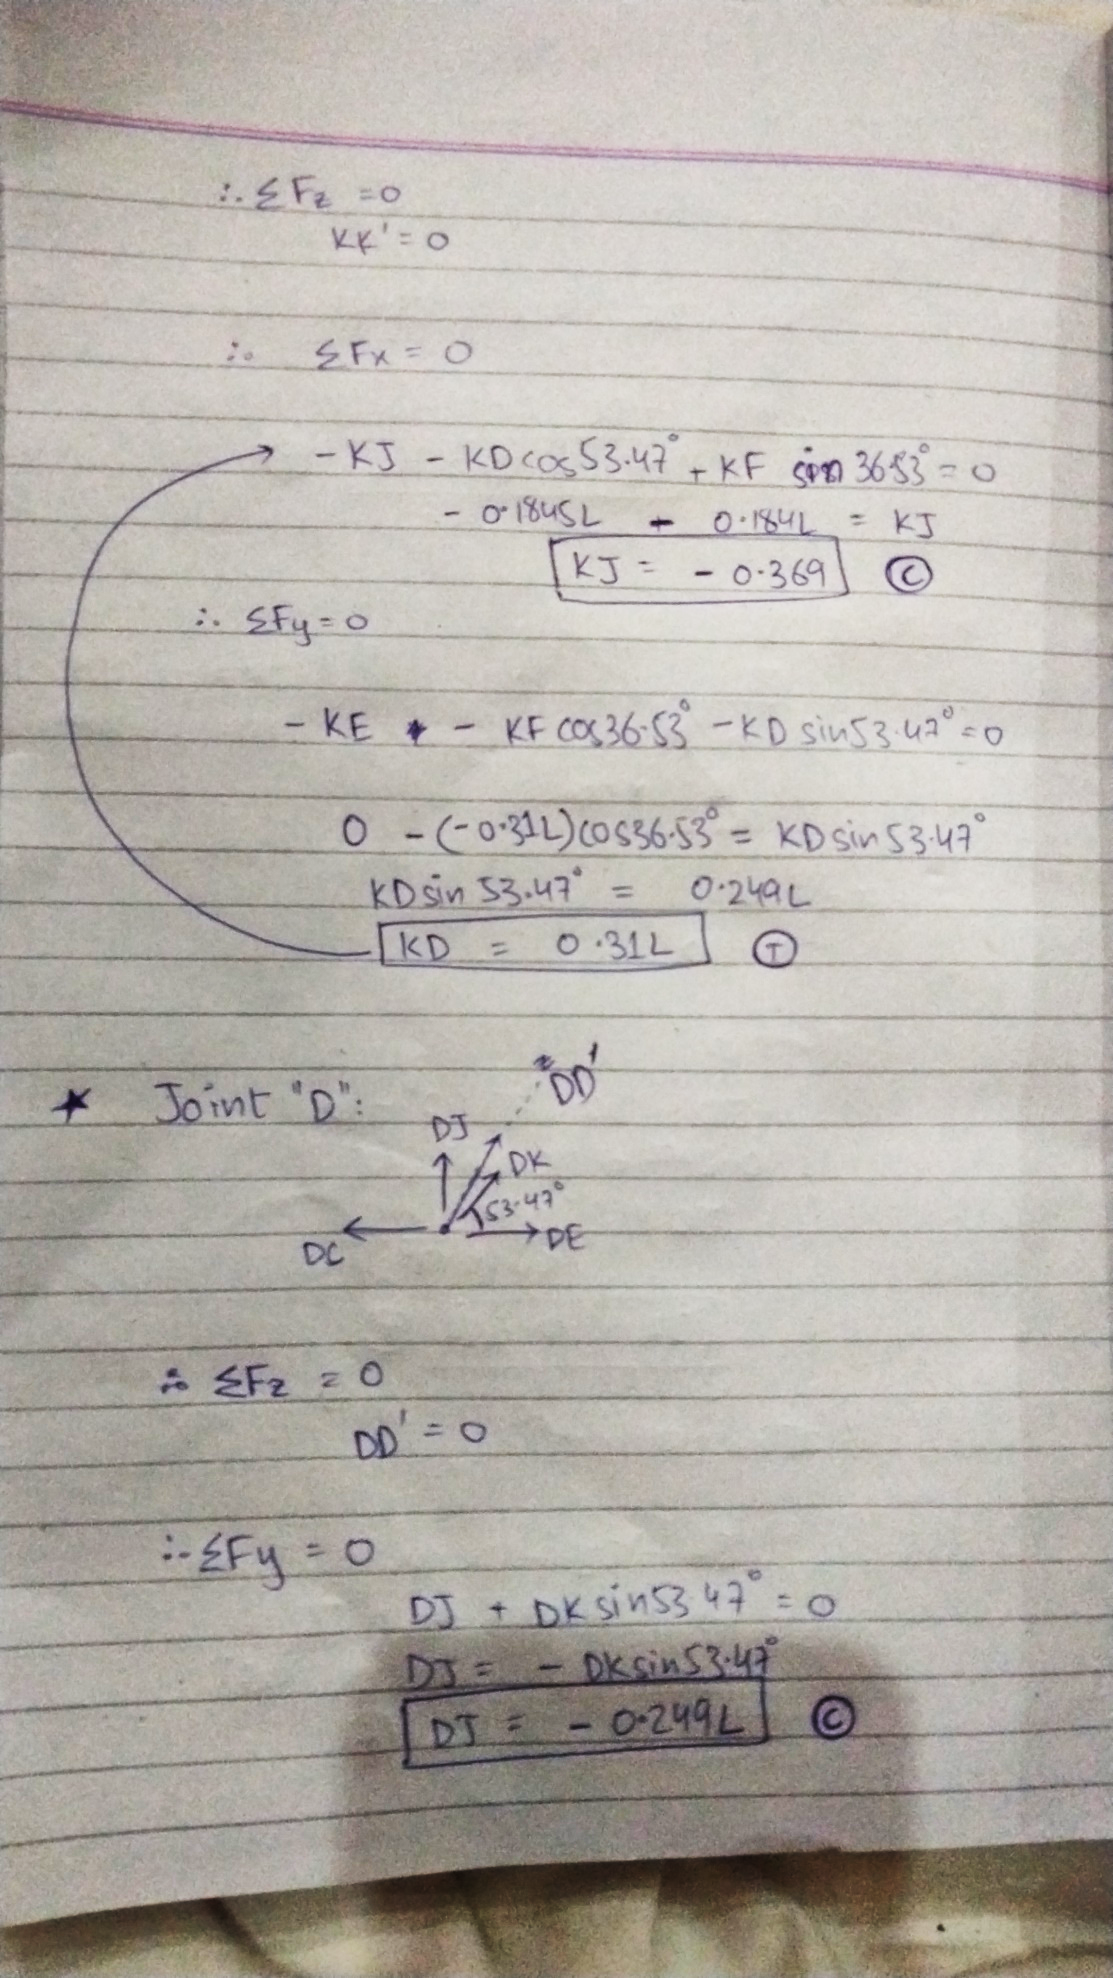 ∴ ΣFz = 0
KK' = 0
∴ ΣFx = 0
- KJ - KD cos 53.47° + KF sin 36.53° = 0
- 0.1845L - 0.184L = KJ
KJ = - 0.369 Ⓒ
∴ ΣFy = 0
- KE - KF cos 36.53° - KD sin 53.47° = 0
0 - (-0.31L) cos 36.53° = KD sin 53.47°
KD sin 53.47° = 0.249L
KD = 0.31L Ⓣ
★ Joint "D":
DD'
DJ
DK
53.47°
DC
DE
∴ ΣFz = 0
DD' = 0
∴ ΣFy = 0
DJ + DK sin 53.47° = 0
DJ = - DK sin 53.47°
DJ = - 0.249L Ⓒ